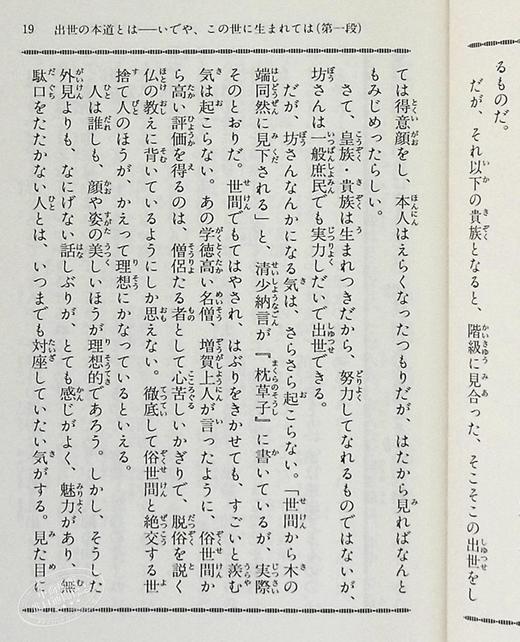 るものだ。
だが、それ以下の貴族となると、階級に見合った、そこそこの出世をし
19 出世の本道とは――いでや、この世に生まれては(第一段)
ては得意顔をし、本人はえらくなったつもりだが、はたから見ればなんと
もみじめったらしい。
さて、皇族・貴族は生まれつきだから、努力してなれるものではないが、
坊さんは一般庶民でも実力しだいで出世できる。
だが、坊さんなんかになる気は、さらさら起こらない。「世間から木の
端同然に見下される」と、清少納言が『枕草子』に書いているが、実際
そのとおりだ。世間でもてはやされ、はぶりをきかせても、すごいと羨む
気は起こらない。あの学徳高い名僧 増賀上人が言ったように、俗世間か
ら高い評価を得るのは、僧侶たる者として心苦しいかぎりで、脱俗を説く
仏の教えに背いているようにしか思えない。徹底して俗世間と絶交する世
捨て人のほうが、かえって理想にかなっているといえる。
人は誰しも、顔や姿の美しいほうが理想的であろう。しかし、そうした
外見よりも、なにげない話しぶりが、とても感じがよく、魅力があり、無
駄口をたたかない人とは、いつまでも対座していたい気がする。見た目に